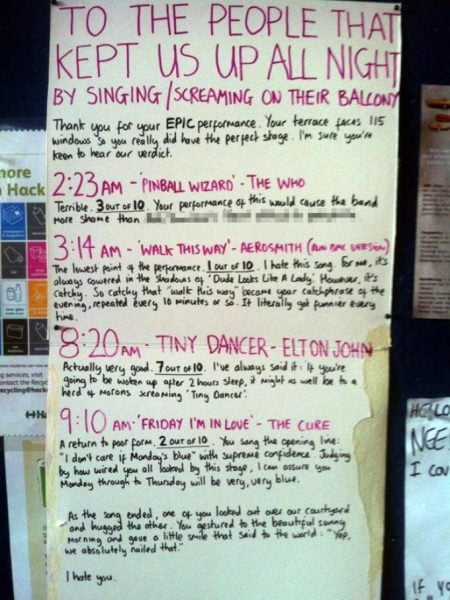 TO THE PEOPLE THAT
KEPT US UP ALL NIGHT
BY SINGING/SCREAMING ON THEIR BALCONY
Thank you for your EPIC performance. Your terrace faces 115
windows so you really did have the perfect stage. I'm sure you're
keen to hear our verdict.
2:23AM - 'PINBALL WIZARD' - THE WHO
Terrible. 3 OUT OF 10. Your performance of this would cause the band
more shame than
3:14 AM - 'WALK THIS WAY' - AEROSMITH (RUN DMC VERSION)
The lowest point of the performance. 1 OUT OF 10. I hate this song. For me, it's
always cowered in the shadows of 'Dude Looks Like A Lady'. However, it's
catchy. So catchy that 'walk this way' became your catchphrase of the
evening, repeated every 10 minutes or so. It literally got funnier every
time.
8:20AM - TINY DANCER - ELTON JOHN
Actually very good. 7 OUT OF 10. I've always said it: If you're
going to be woken up after 2 hours sleep, it might as well be to a
herd of morons screaming 'Tiny Dancer'.
9:10 AM - 'FRIDAY I'M IN LOVE' - THE CURE
A return to poor form. 2 OUT OF 10. You sang the opening line:
"I don't care if Monday's blue" with supreme confidence. Judging
by how wired you all looked by this stage, I can assure you
Monday through to Thursday will be very, very blue.
As the song ended, one of you looked out over our courtyard
and hugged the other. You gestured to the beautiful sunny
morning and gave a little smile that said to the world: "Yep,
we absolutely nailed that."
I hate you.
more
Hack
ng services, visit
contact the Recyc
ecycling@hack
HELLO
NEE
I COU
If yo